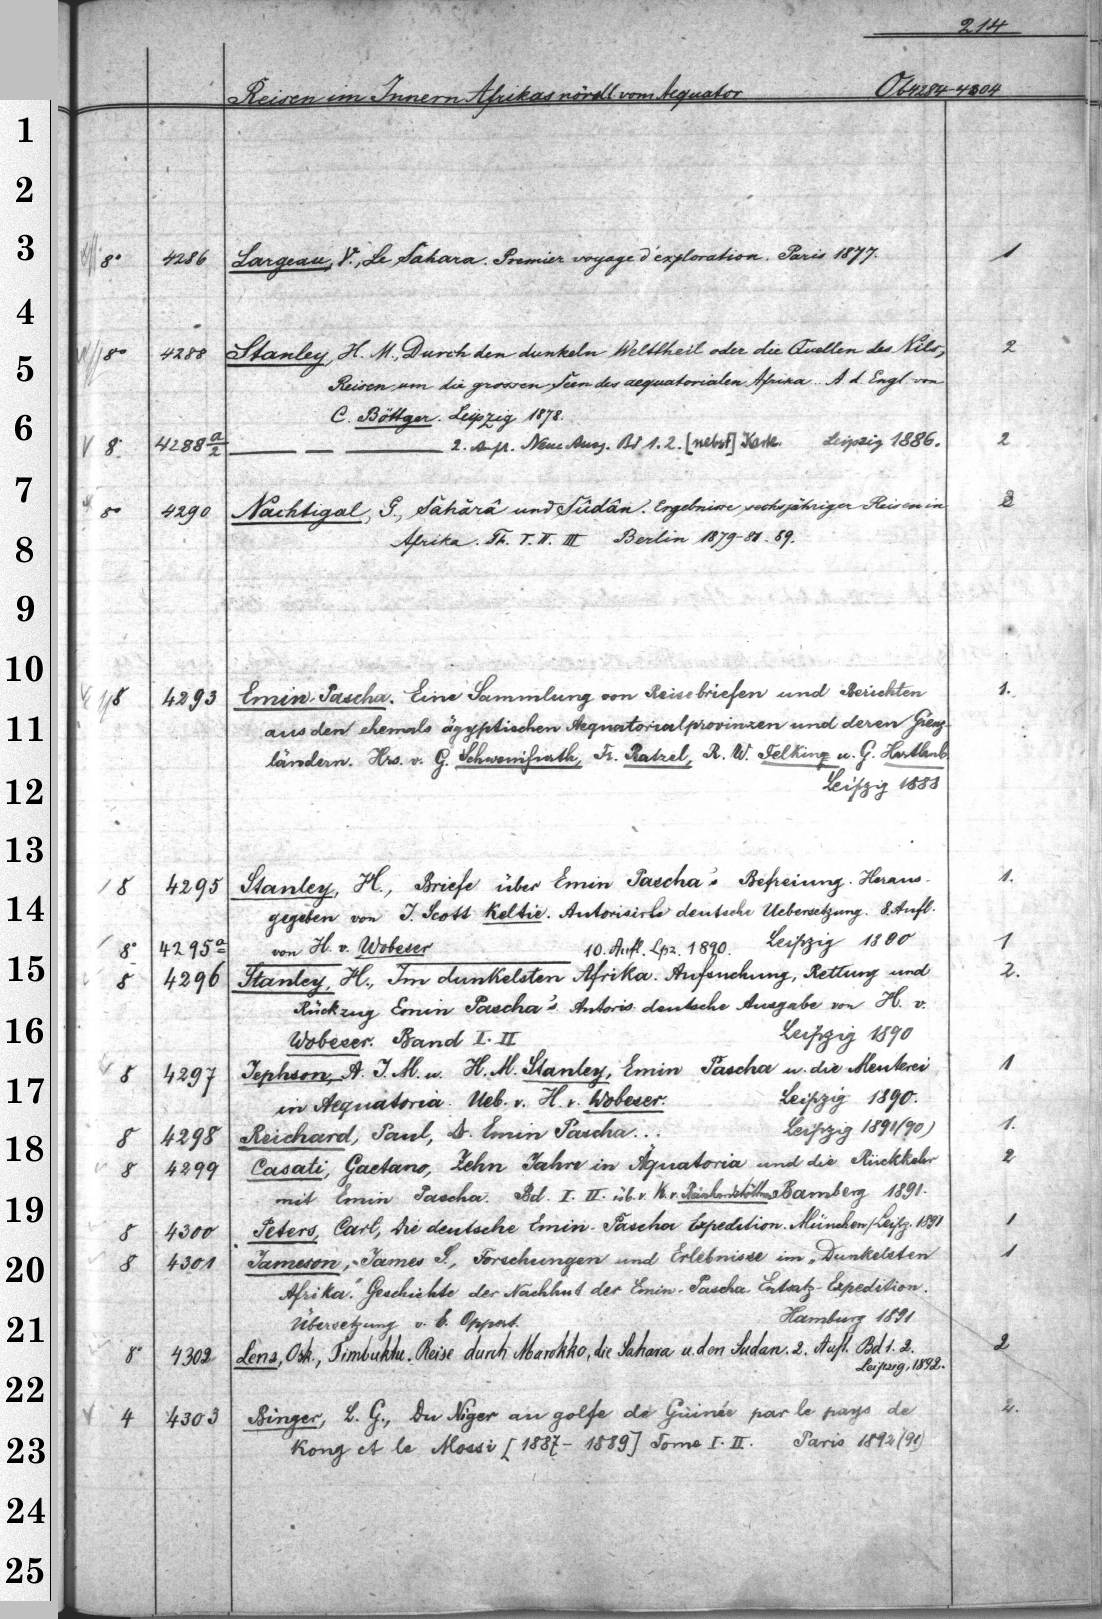 214
Reisen im Innern Afrikas nördl vom Aequator Ob 4284-4304
1
2
3 8° 4286 Largeau, V., Le Sahara. Premier voyage d'exploration. Paris 1877. 1
4
5 8° 4288 Stanley, H. M., Durch den dunkeln Welttheil oder die Quellen des Nils, 2
Reisen um die grossen Seen des aequatorialen Afrika. A d. Engl von
6 C. Böttger. Leipzig 1878.
8° 4288 a/2 — — — 2. Aufl. Neue Ausg. Bd 1. 2. [nebst] Kart. Leipzig 1886. 2
7 8° 4290 Nachtigal, G., Sahărâ und Sûdân. Ergebnisse sechsjähriger Reisen in
8 Afrika. Th. I. II. III Berlin 1879-81. 89.
9
10 8 4293 Emin-Pascha. Eine Sammlung von Reisebriefen und Berichten 1.
11 aus den ehemals ägyptischen Aequatorialprovinzen und deren Grenz-
ländern. Hrs. v. G. Schweinfurth, Fr. Ratzel, R. W. Felking u. G. Hartlaub.
12 Leipzig 1888
13
8 4295 Stanley, H., Briefe über Emin Pascha's Befreiung. Heraus- 1.
14 gegeben von J. Scott Keltie. Autorisirte deutsche Uebersetzung. 8. Aufl.
von H. v. Wobeser Leipzig 1890
8° 4295 a 10. Aufl. Lpz. 1890. 1
15 8 4296 Stanley, H., Im dunkelsten Afrika. Aufsuchung, Rettung und 2.
Rückzug Emin Pascha's Autoris. deutsche Ausgabe von H. v.
16 Wobeser. Band I. II Leipzig 1890
8 4297 Jephson, A. J. M. u. H. M. Stanley, Emin Pascha u. die Meuterei 1
17 in Aequatoria. Ueb. v. H. v. Wobeser. Leipzig 1890.
18 8 4298 Reichard, Paul, Dr. Emin Pascha... Leipzig 1891(90) 1.
8 4299 Casati, Gaetano, Zehn Jahre in Äquatoria und die Rückkehr 2
19 mit Emin Pascha. Bd. I. II üb. v. K. v. Reinhardstöttner Bamberg 1891.
8 4300 Peters, Carl, Die deutsche Emin-Pascha Expedition. München/Leipz. 1891 1
20 8 4301 Jameson, James S., Forschungen und Erlebnisse im „Dunkelsten 1
Afrika." Geschichte der Nachhut der Emin-Pascha Entsatz-Expedition.
21 Übersetzung v. E. Oppert. Hamburg 1891
8° 4302 Lenz, Osk., Timbuktu. Reise durch Marokko, die Sahara u. den Sudan. 2. Aufl. Bd 1. 2. 2
Leipzig, 1892.
22 4 4303 Binger, L. G., Du Niger au golfe de Guinée par le pays de 2.
23 Kong et le Mossi [1887-1889] Tome I. II. Paris 1892(91)
24
25